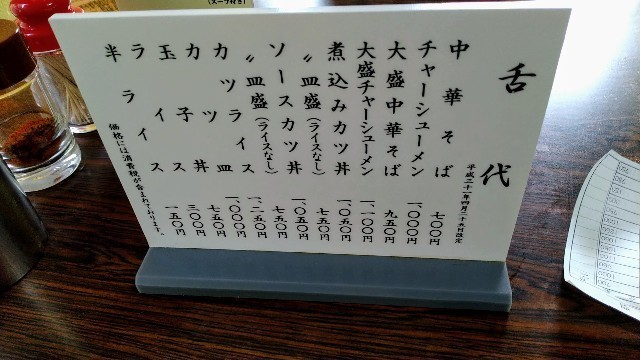 舌代
平成二十一年四月二十九日改定
中華そば 七〇〇円
チャーシューメン 一、〇〇〇円
大盛中華そば 九五〇円
大盛チャーシューメン 一、一〇〇円
煮込みカツ丼 一、〇五〇円
〃皿盛(ライスなし) 七五〇円
ソースカツ丼 一、〇五〇円
〃皿盛(ライスなし) 七五〇円
カツライス 一、二五〇円
カツ皿 一、〇〇〇円
玉子丼 七五〇円
ライス 三〇〇円
半ライス 一五〇円
価格には消費税が含まれております。
(スープ付き)